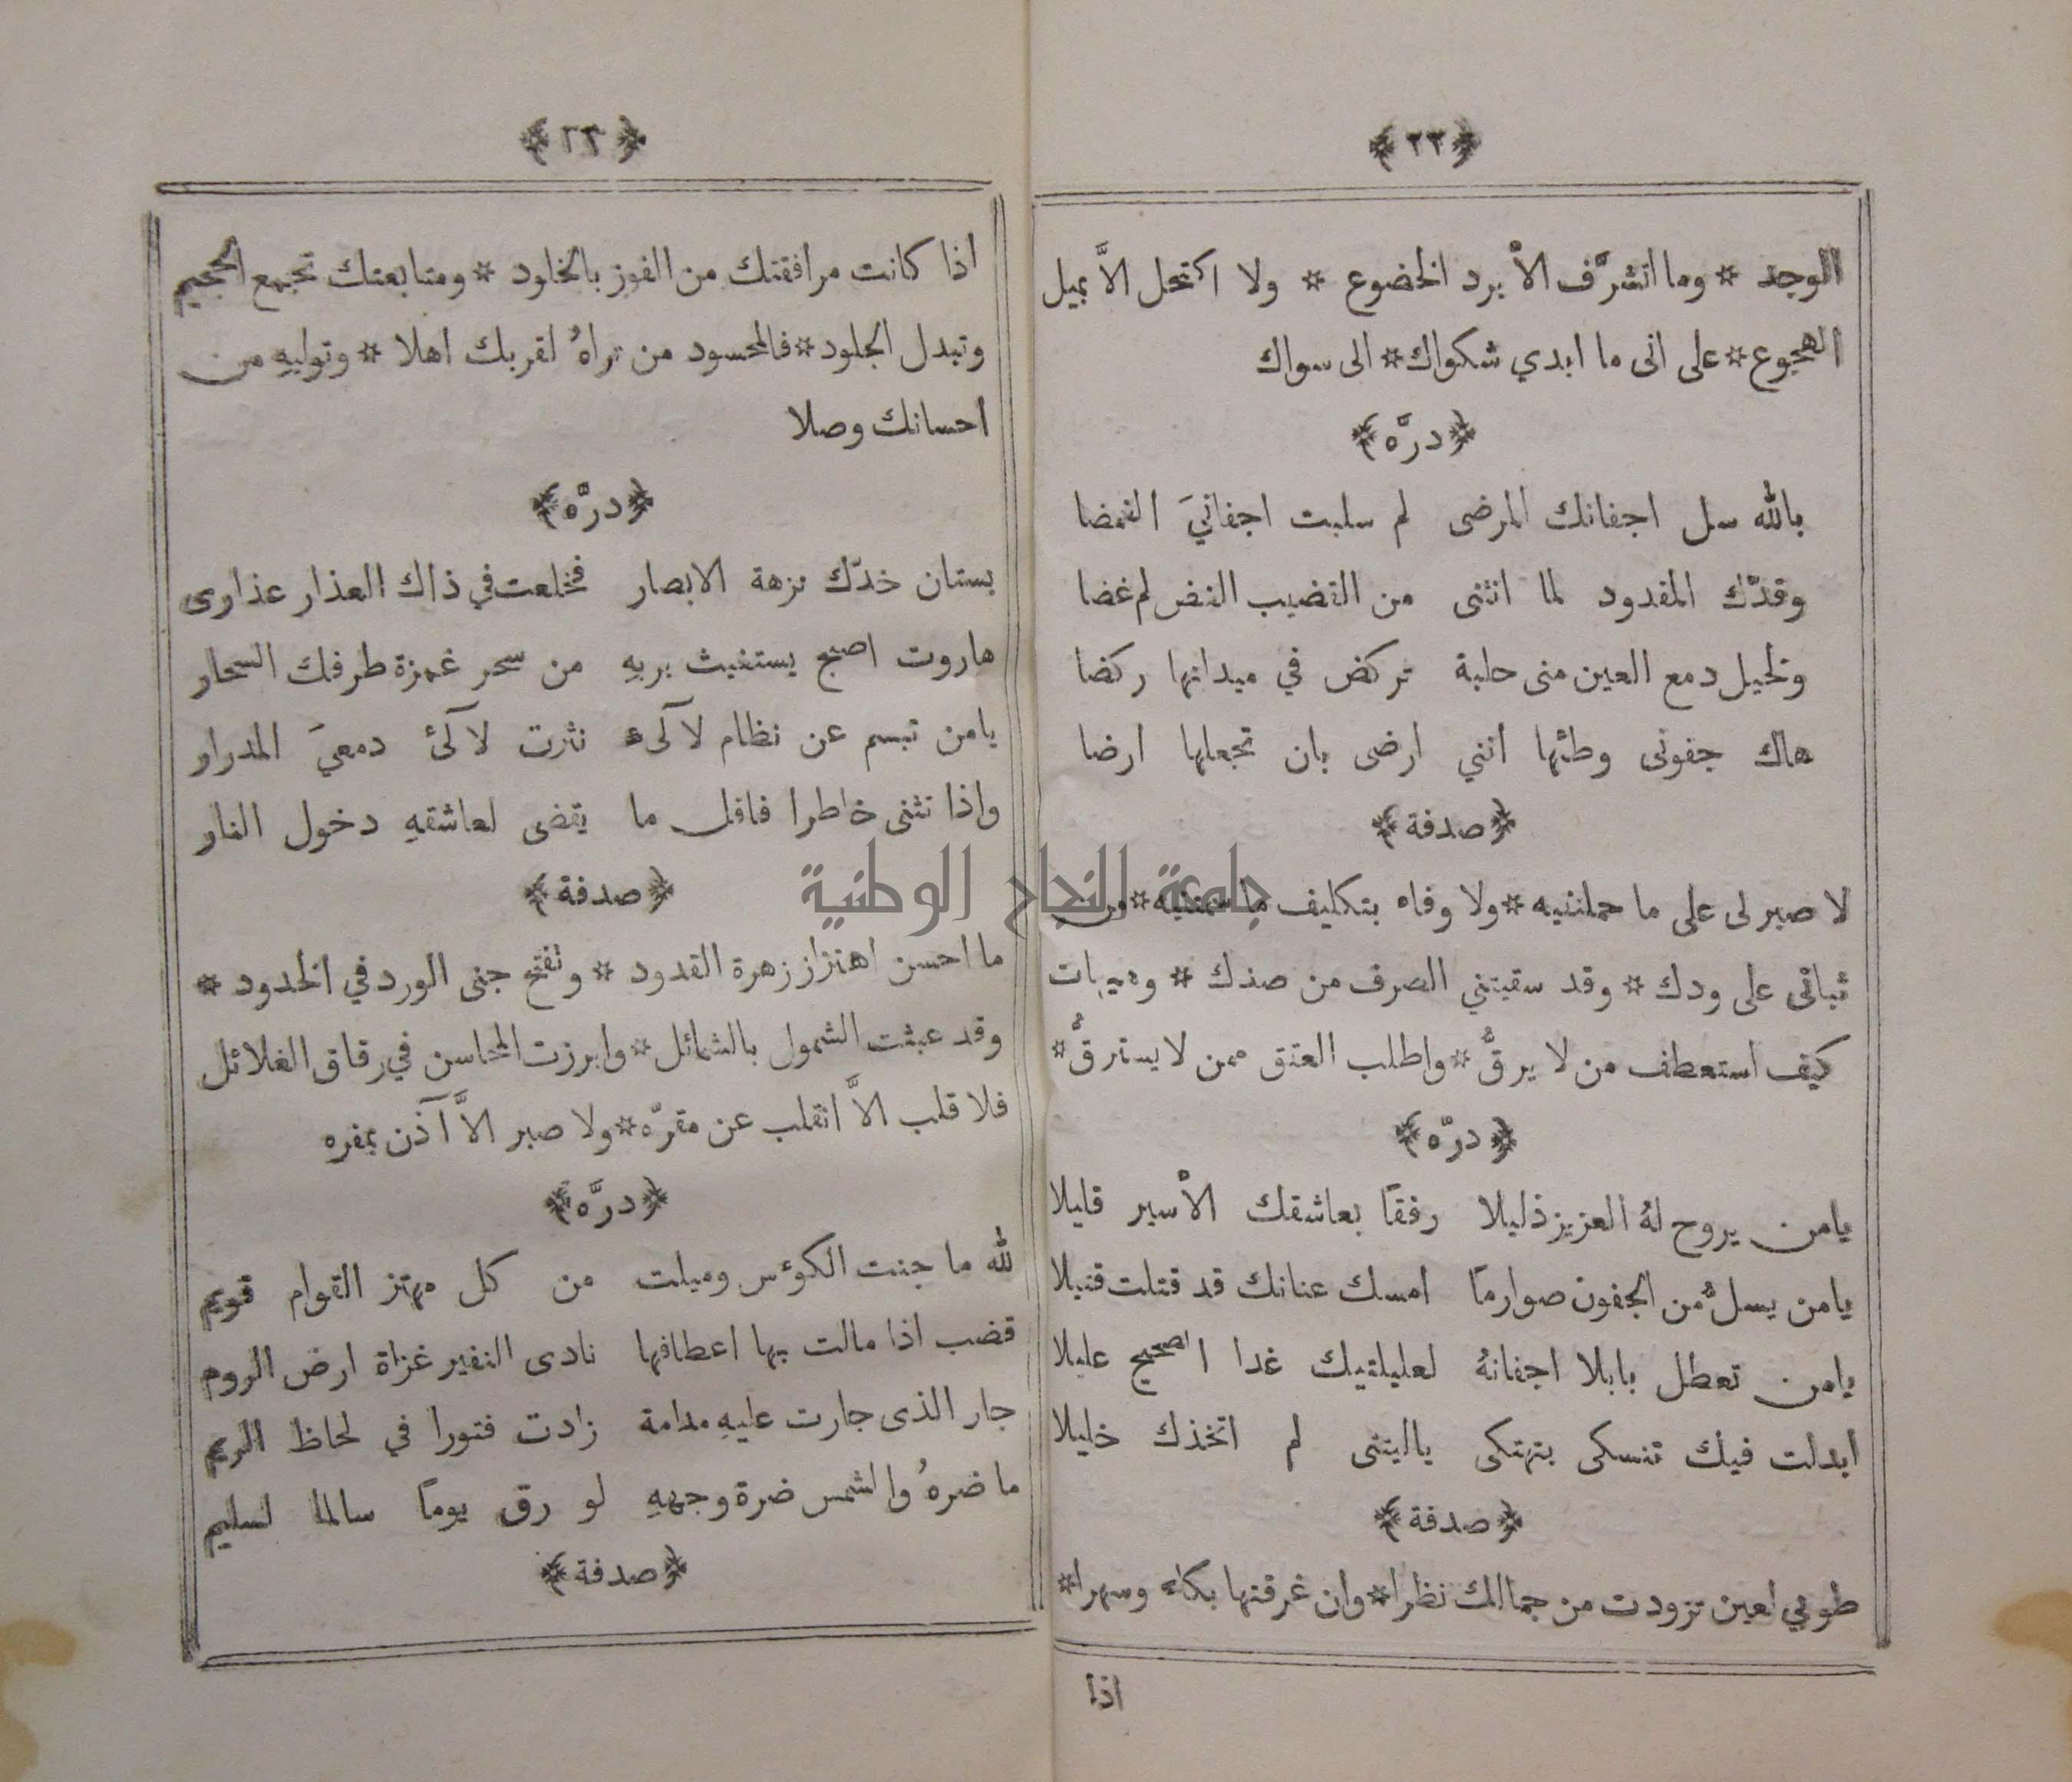 ﴿٢٢﴾
الوجد * وما اتشرَّف الاْ برد الخضوع * ولا اكتحل الاَّ بميل
الهجوع * على انى ما ابدي شكواك * الى سواك
﴿درَّه﴾
بالله سل اجفانك المرضى لم سلبت اجفانيَ الغمضا
وقدّك المقدود لما انثنى من القضيب الغض لم غضا
وتخيل دمع العين منى حلبة تركض في ميدانها ركضا
هاك جفونى وطئها انني ارضى بان تجعلها ارضا
﴿صدفة﴾
لا صبر لى على ما حملتنيه * ولا وفاه بتكليف ما سمتنيه * من
ثباتى على ودك * وقد سقيتني الصرف من صدك * وهيهات
كيف استعطف من لا يرقُّ * واطلب العتق ممن لا يسترقُّ *
﴿درّه﴾
يامن يروح لهُ العزيز ذليلا رفقاً بعاشقك الاْسير قليلا
يا من يسلُّ من الجفون صوارماً امسك عنانك قد قتلت قتيلا
يامن تعطل بابلا اجفانهُ لعليلتيك غدا الصحيح عليلا
ابدلت فيك تنسكى بتهتكى ياليتنى لم اتخذك خليلا
﴿صدفة﴾
طوبي لعين تزودت من جمالك نظرا * وان غرقتها بكاء وسهرا *
اذا
﴿٢٣﴾
اذا كانت مرافقتك من الفوز بالخلود * ومتابعتك تجمع الجحيم
وتبدل الجلود * فالمحسود من تراهُ لقربك اهلا * وتوليهِ من
احسانك وصلا
﴿درَّه﴾
بستان خدّك نزهة الابصار فخلعت في ذاك العذار عذارى
هاروت اصبح يستغيث بربهِ من سحر غمزة طرفك السحار
يامن تبسم عن نظام لآلىء نثرت لآلئ دمعيَ المدرار
واذا تثنى خاطرا فاقل ما يقضى لعاشقهِ دخول النار
﴿صدفة﴾
ما احسن اهتزاز زهرة القدود * وتفتح جنى الورد في الخدود *
وقد عبثت الشمول بالشمائل * وابرزت المحاسن في رقاق الغلائل
فلا قلب الاَّ انقلب عن مقرّه * ولا صبر الاَّ آذن بمفره
﴿درَّه﴾
لله ما جنت الكوءس وميلت من كل مهتز القوام قويم
قضب اذا مالت بها اعطافها نادى النفير غزاة ارض الروم
جار الذى جارت عليهِ مدامة زادت فتورا في لحاظ الريم
ما ضرهُ والشمس ضرة وجههِ لو رق يوماً سالما لسليم
﴿صدفة﴾
جامعة النجاح الوطنية